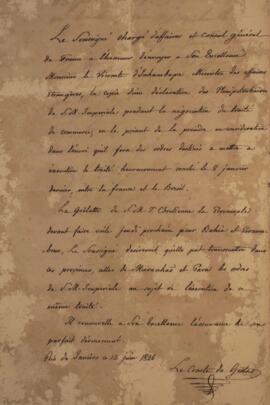 Le Soussigné chargé d'affaires et consul général
de France a l'honneur d'envoyer a Son Excellence
Monsieur le Vicomte d'Inhambupe Ministre des affaires
Etrangères, la copie d'une déclaration des Plénipotentiaires
de S.M. Impériale pendant la négociation du traité
de commerce, en le priant de la prendre en considération
dans l'envoi qu'il fera des ordres destinés a mettre a
exécution le traité heureusement conclu le 8 janvier
dernier, entre la france et le Brésil.
La Goëlette de S.M. T. Chrétienne la
devant faire voile jeudi prochain pour Bahia et Fernam-
bouc, le Soussigné désirerait qu'elle put transmettre dans
ces provinces, celles de Maranhaõ et Para les ordres
de S.M. Impériale au sujet de l'exécution de ce
même traité.
Il renouvelle a Son Excellence l'assurance de son
parfait dévouement.
Rio de Janeiro a 13 juin 1826
Le Comte de Gestas